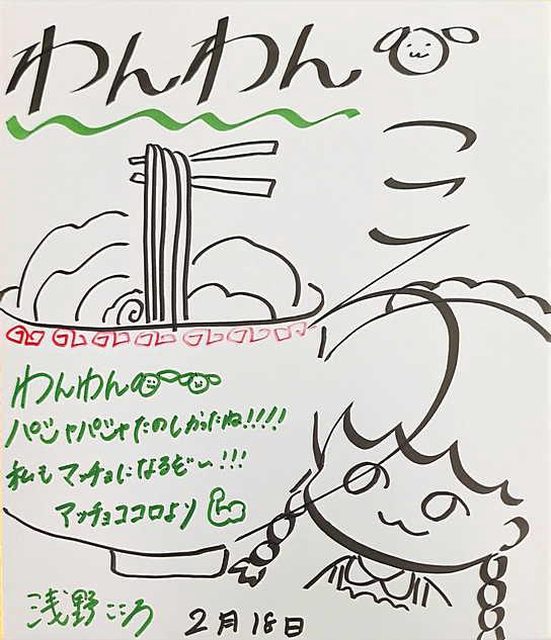 わんわん
こころ
わんわん
パジャパジャたのしかったね!!!!
私もマッチョになるぞい!!!
マッチョココロより
浅野こころ
2月18日